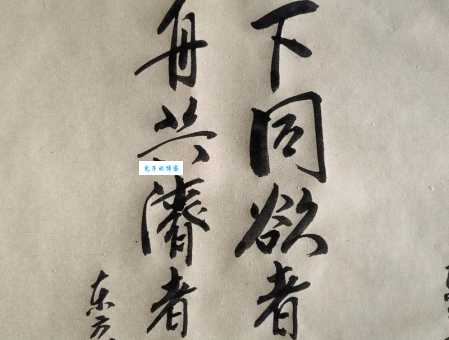 下同欲者
舟共濟者
东方